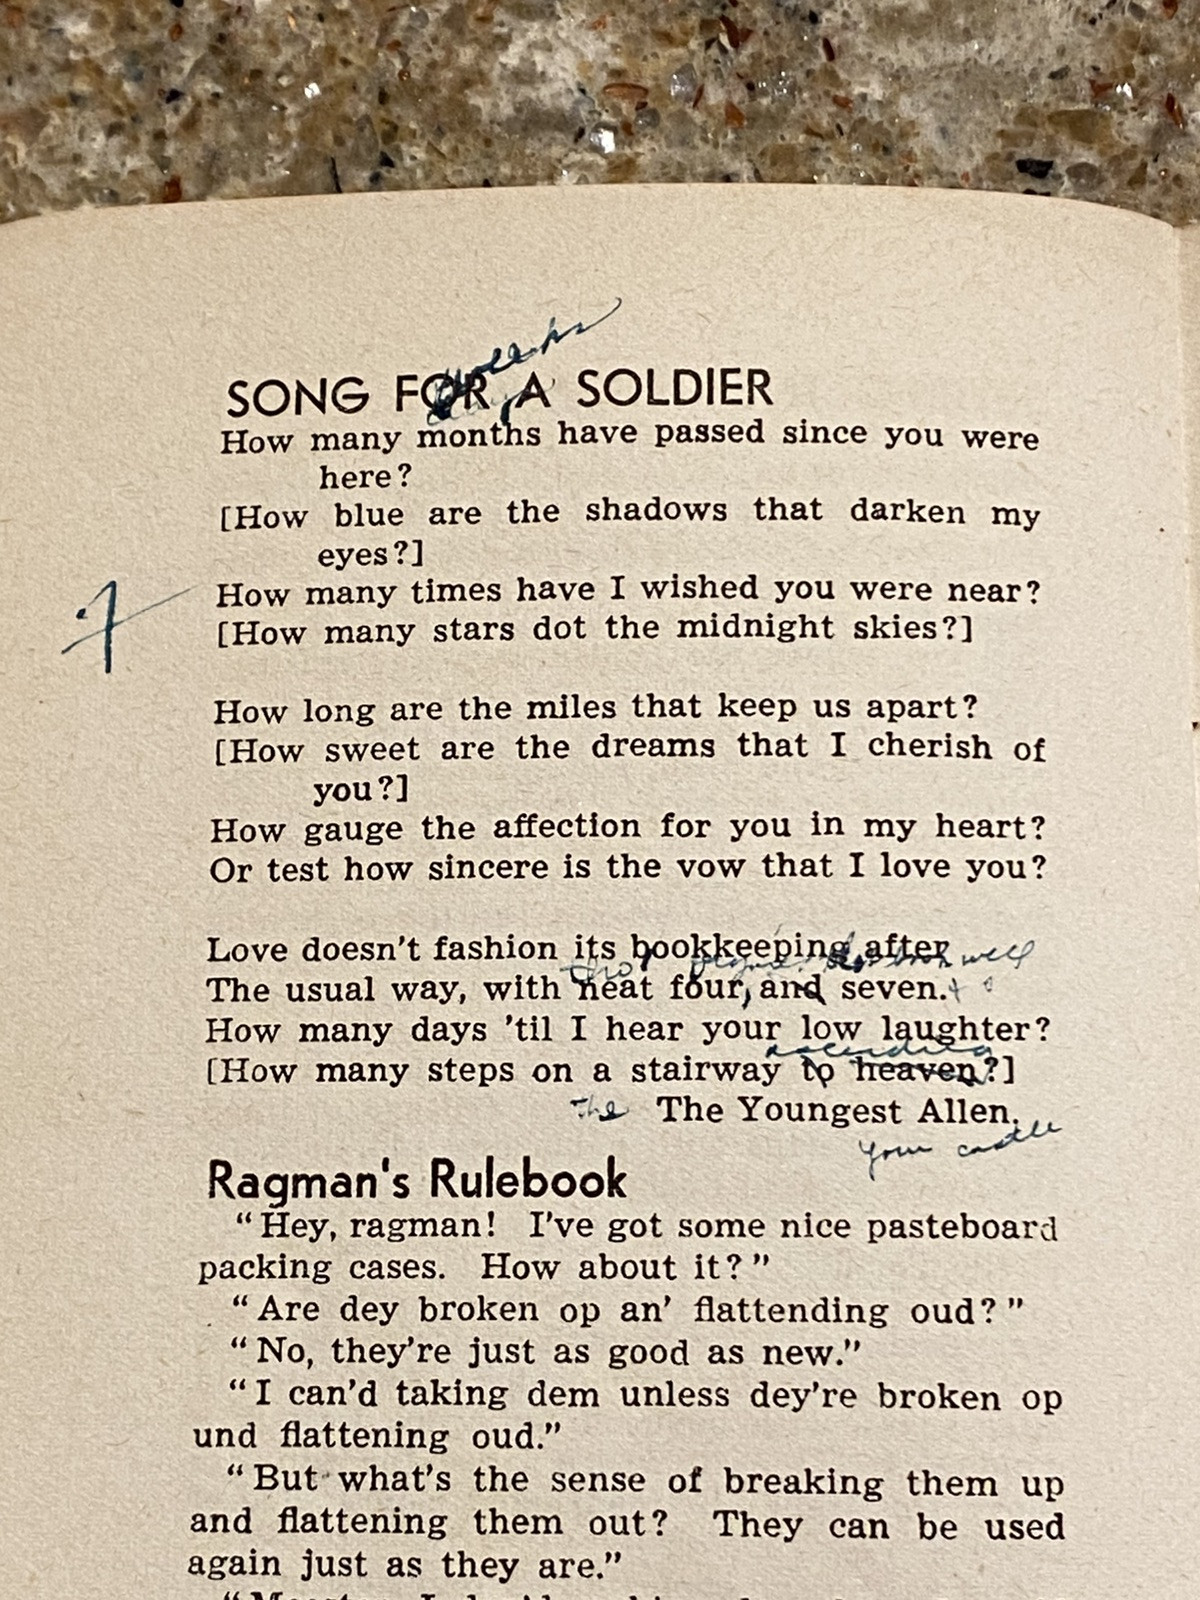 weeks
SONG FOR A SOLDIER
How many months have passed since you were
here?
[How blue are the shadows that darken my
eyes?]
How many times have I wished you were near?
[How many stars dot the midnight skies?]
How long are the miles that keep us apart?
[How sweet are the dreams that I cherish of
you?]
How gauge the affection for you in my heart?
Or test how sincere is the vow that I love you?
Love doesn't fashion its bookkeeping after
The usual way, with neat four, and seven.
How many days 'til I hear your low laughter?
ascending
[How many steps on a stairway to heaven?]
the The Youngest Allen.
your castle
Ragman's Rulebook
“Hey, ragman! I've got some nice pasteboard
packing cases. How about it?”
“Are dey broken op an' flattending oud?”
“No, they're just as good as new.”
“I can'd taking dem unless dey're broken op
und flattening oud.”
“But what's the sense of breaking them up
and flattening them out? They can be used
again just as they are.”